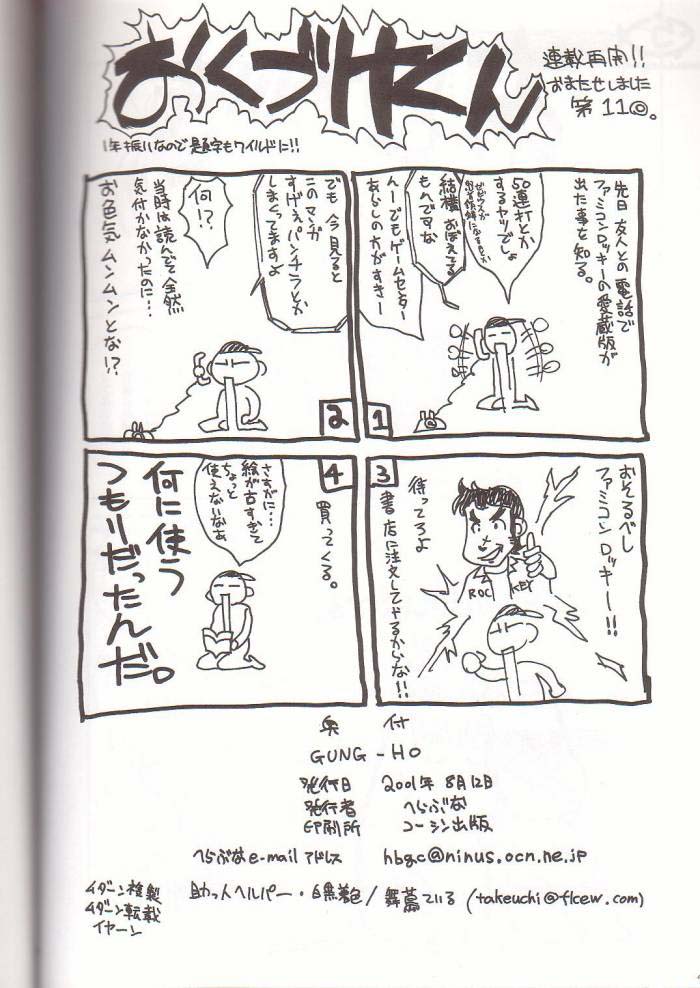 おくづけくん
連載再開!!
おまたせしました
第11回。
1年振りなので題字もワイルドに!!
先日 友人との電話で
ファミコンロッキーの愛蔵版が
出た事を知る。
50連打とか
するヤツでしょ
結構 おぼえてる
もんですな
んーでもゲームセンター
あらしの方がすきー
1
でも 今見ると
このマンガ
すげえパンチラとか
しまくってますよ
何!?
当時は読んでて全然
気付かなかったのに…
お色気ムンムンとな!?
2
おそるべし
ファミコンロッキー!!
ROC KEY
待ってろよ
書店に注文してやるからな!!
3
買ってくる。
さすがに…
絵が古すぎて
ちょっと
使えないなあ
何に使う
つもりだったんだ。
4
奥 付
GUNG-HO
発行日 2001年 8月12日
発行者 へらぶな
印刷所 コーシン出版
へらぶなe-mail アドレス hbgc@ninus.ocn.ne.jp
助っ人ヘルパー・白無着色/舞蔦ている (takeuchi@flcew.com)
ムダーン複製
ムダーン転載
イヤーン